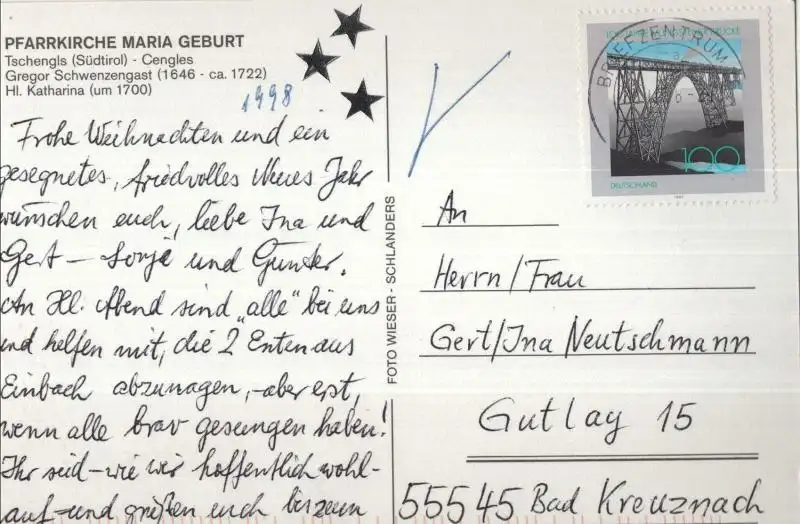 PFARRKIRCHE MARIA GEBURT
Tschengls (Südtirol) - Cengles
Gregor Schwenzengast (1646 - ca. 1722)
Hl. Katharina (um 1700)
1998
Frohe Weihnachten und ein
gesegnetes, friedvolles Neues Jahr
wünschen euch, liebe Ina und
Gert – Sonja und Günter.
Am Hl. Abend sind „alle" bei uns
und helfen mit, die 2 Enten aus
Einbach abzunagen, – aber erst,
wenn alle brav gesungen haben!
Ihr seid – wie wir hoffentlich wohl-
auf – und grüßen euch bis zum
FOTO WIESER - SCHLANDERS
BRIEFZENTRUM
100
DEUTSCHLAND
An
Herrn/Frau
Gert/Ina Neutschmann
Gutlay 15
55545 Bad Kreuznach